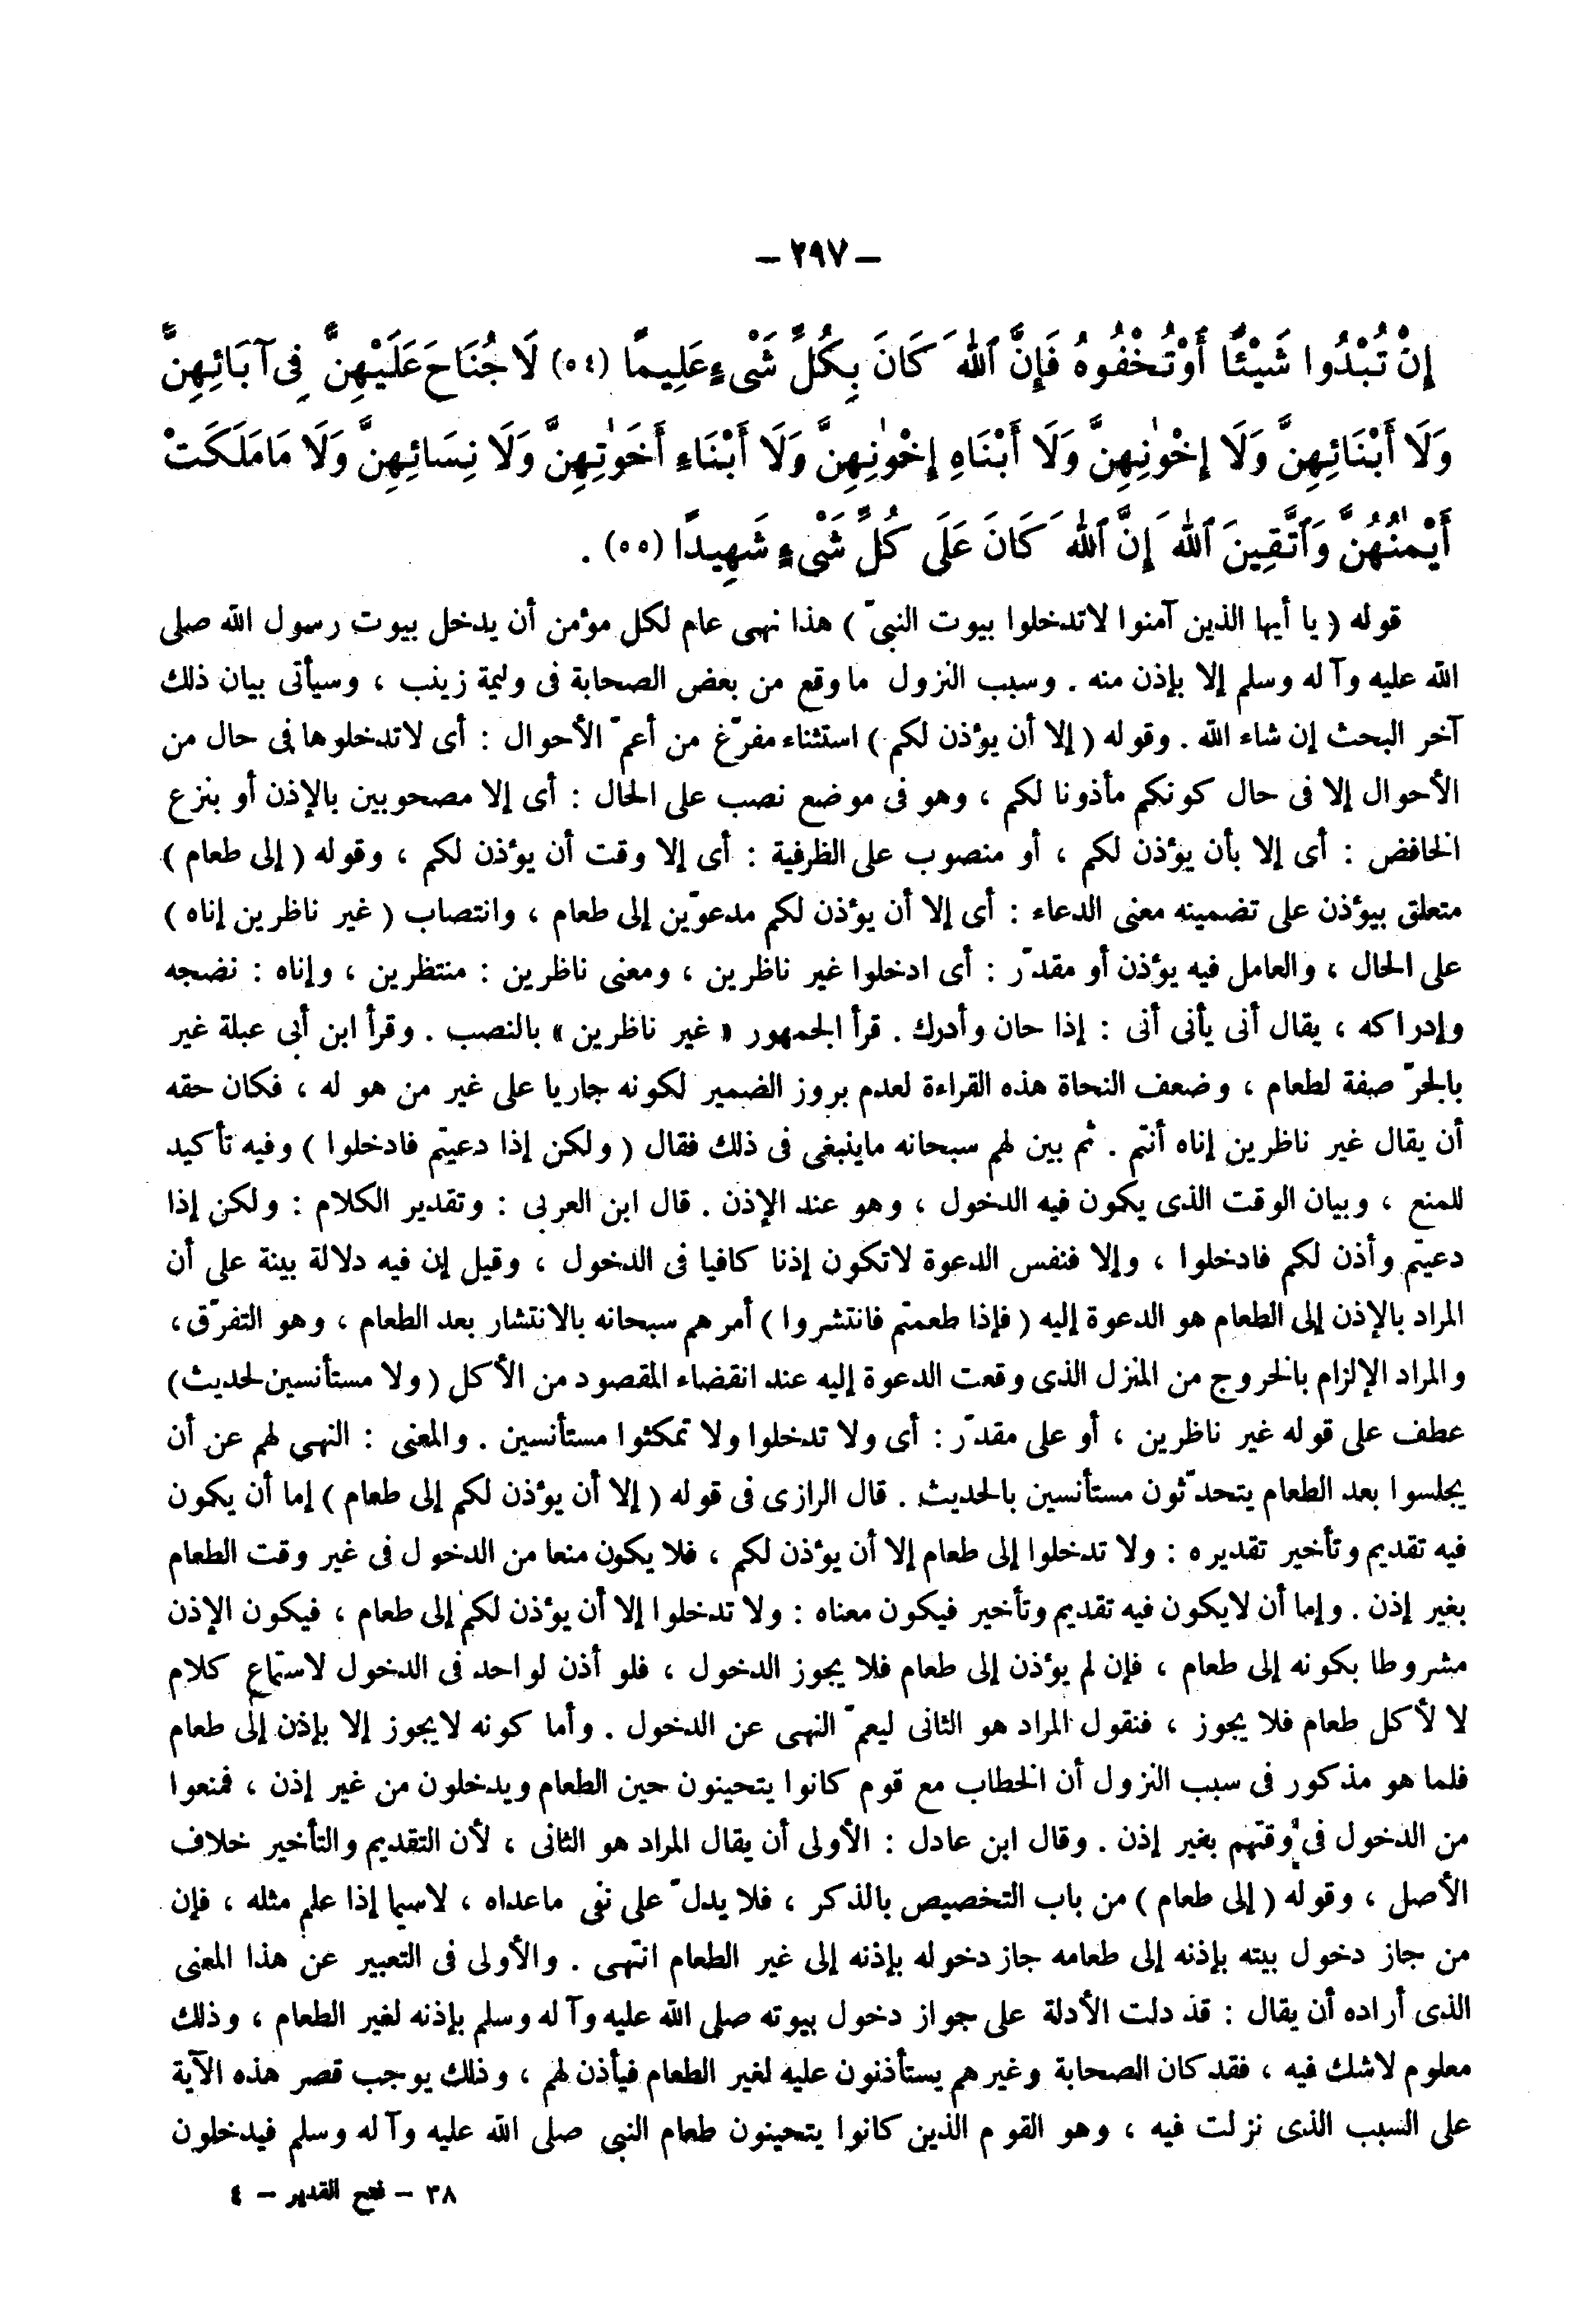 – ٢٩٧ –
إِنْ تُبْدُوا شَيْئًا أَوْ تُخْفُوهُ فَإِنَّ ٱللَّهَ كَانَ بِكُلِّ شَيْءٍ عَلِيمًا (٥٤) لَا جُنَاحَ عَلَيْهِنَّ فِى آبَائِهِنَّ
وَلَا أَبْنَائِهِنَّ وَلَا إِخْوٰنِهِنَّ وَلَا أَبْنَاءِ إِخْوٰنِهِنَّ وَلَا أَبْنَاءِ أَخَوٰتِهِنَّ وَلَا نِسَائِهِنَّ وَلَا مَا مَلَكَتْ
أَيْمٰنُهُنَّ وَٱتَّقِينَ ٱللَّهَ إِنَّ ٱللَّهَ كَانَ عَلَى كُلِّ شَىْءٍ شَهِيدًا (٥٥) .
قوله ( يا أيها الذين آمنوا لاتدخلوا بيوت النبىّ ) هذا نهى عام لكل مؤمن أن يدخل بيوت رسول الله صلى
الله عليه وآله وسلم إلا بإذن منه . وسبب النزول ماوقع من بعض الصحابة فى وليمة زينب ، وسيأتى بيان ذلك
آخر البحث إن شاء الله . وقوله ( إلا أن يؤذن لكم ) استثناء مفرّغ من أعمّ الأحوال : أى لاتدخلوها فى حال من
الأحوال إلا فى حال كونكم مأذونا لكم ، وهو فى موضع نصب على الحال : أى إلا مصحوبين بالإذن أو بنزع
الخافض : أى إلا بأن يؤذن لكم ، أو منصوب على الظرفية : أى إلا وقت أن يؤذن لكم ، وقوله ( إلى طعام )
متعلق بيؤذن على تضمينه معنى الدعاء : أى إلا أن يؤذن لكم مدعوّين إلى طعام ، وانتصاب ( غير ناظرين إناه )
على الحال ، والعامل فيه يؤذن أو مقدّر : أى ادخلوا غير ناظرين ، ومعنى ناظرين : منتظرين ، وإناه : نضجه
وإدراكه ، يقال أنى يأنى أنى : إذا حان وأدرك . قرأ الجمهور « غير ناظرين » بالنصب . وقرأ ابن أبى عبلة غير
بالجرّ صفة لطعام ، وضعف النحاة هذه القراءة لعدم بروز الضمير لكونه جاريا على غير من هو له ، فكان حقه
أن يقال غير ناظرين إناه أنتم . ثم بين لهم سبحانه ماينبغى فى ذلك فقال ( ولكن إذا دعيتم فادخلوا ) وفيه تأكيد
للمنع ، وبيان الوقت الذى يكون فيه الدخول ، وهو عند الإذن . قال ابن العربى : وتقدير الكلام : ولكن إذا
دعيتم وأذن لكم فادخلوا ، وإلا فنفس الدعوة لاتكون إذنا كافيا فى الدخول ، وقيل إن فيه دلالة بينة على أن
المراد بالإذن إلى الطعام هو الدعوة إليه ( فإذا طعمتم فانتشروا ) أمرهم سبحانه بالانتشار بعد الطعام ، وهو التفرّق،
والمراد الإلزام بالخروج من المنزل الذى وقعت الدعوة إليه عند انقضاء المقصود من الأكل ( ولا مستأنسين لحديث)
عطف على قوله غير ناظرين ، أو على مقدّر : أى ولا تدخلوا ولا تمكثوا مستأنسين . والمعنى : النهى لهم عن أن
يجلسوا بعد الطعام يتحدّثون مستأنسين بالحديث . قال الرازى فى قوله ( إلا أن يؤذن لكم إلى طعام ) إما أن يكون
فيه تقديم وتأخير تقديره : ولا تدخلوا إلى طعام إلا أن يؤذن لكم ، فلا يكون منعا من الدخول فى غير وقت الطعام
بغير إذن . وإما أن لايكون فيه تقديم وتأخير فيكون معناه : ولا تدخلوا إلا أن يؤذن لكم إلى طعام ، فيكون الإذن
مشروطا بكونه إلى طعام ، فإن لم يؤذن إلى طعام فلا يجوز الدخول ، فلو أذن لواحد فى الدخول لاستماع كلام
لا لأكل طعام فلا يجوز ، فنقول المراد هو الثانى ليعمّ النهى عن الدخول . وأما كونه لايجوز إلا بإذن إلى طعام
فلما هو مذكور فى سبب النزول أن الخطاب مع قوم كانوا يتحينون حين الطعام ويدخلون من غير إذن ، فمنعوا
من الدخول فى وقتهم بغير إذن . وقال ابن عادل : الأولى أن يقال المراد هو الثانى ، لأن التقديم والتأخير خلاف
الأصل ، وقوله ( إلى طعام ) من باب التخصيص بالذكر ، فلا يدلّ على نفى ماعداه ، لاسيما إذا علم مثله ، فإن
من جاز دخول بيته بإذنه إلى طعامه جاز دخوله بإذنه إلى غير الطعام انتهى . والأولى فى التعبير عن هذا المعنى
الذى أراده أن يقال : قد دلت الأدلة على جواز دخول بيوته صلى الله عليه وآله وسلم بإذنه لغير الطعام ، وذلك
معلوم لاشك فيه ، فقد كان الصحابة وغيرهم يستأذنون عليه لغير الطعام فيأذن لهم ، وذلك يوجب قصر هذه الآية
على السبب الذى نزلت فيه ، وهو القوم الذين كانوا يتحينون طعام النبى صلى الله عليه وآله وسلم فيدخلون
٣٨ – فتح القدير – ٤